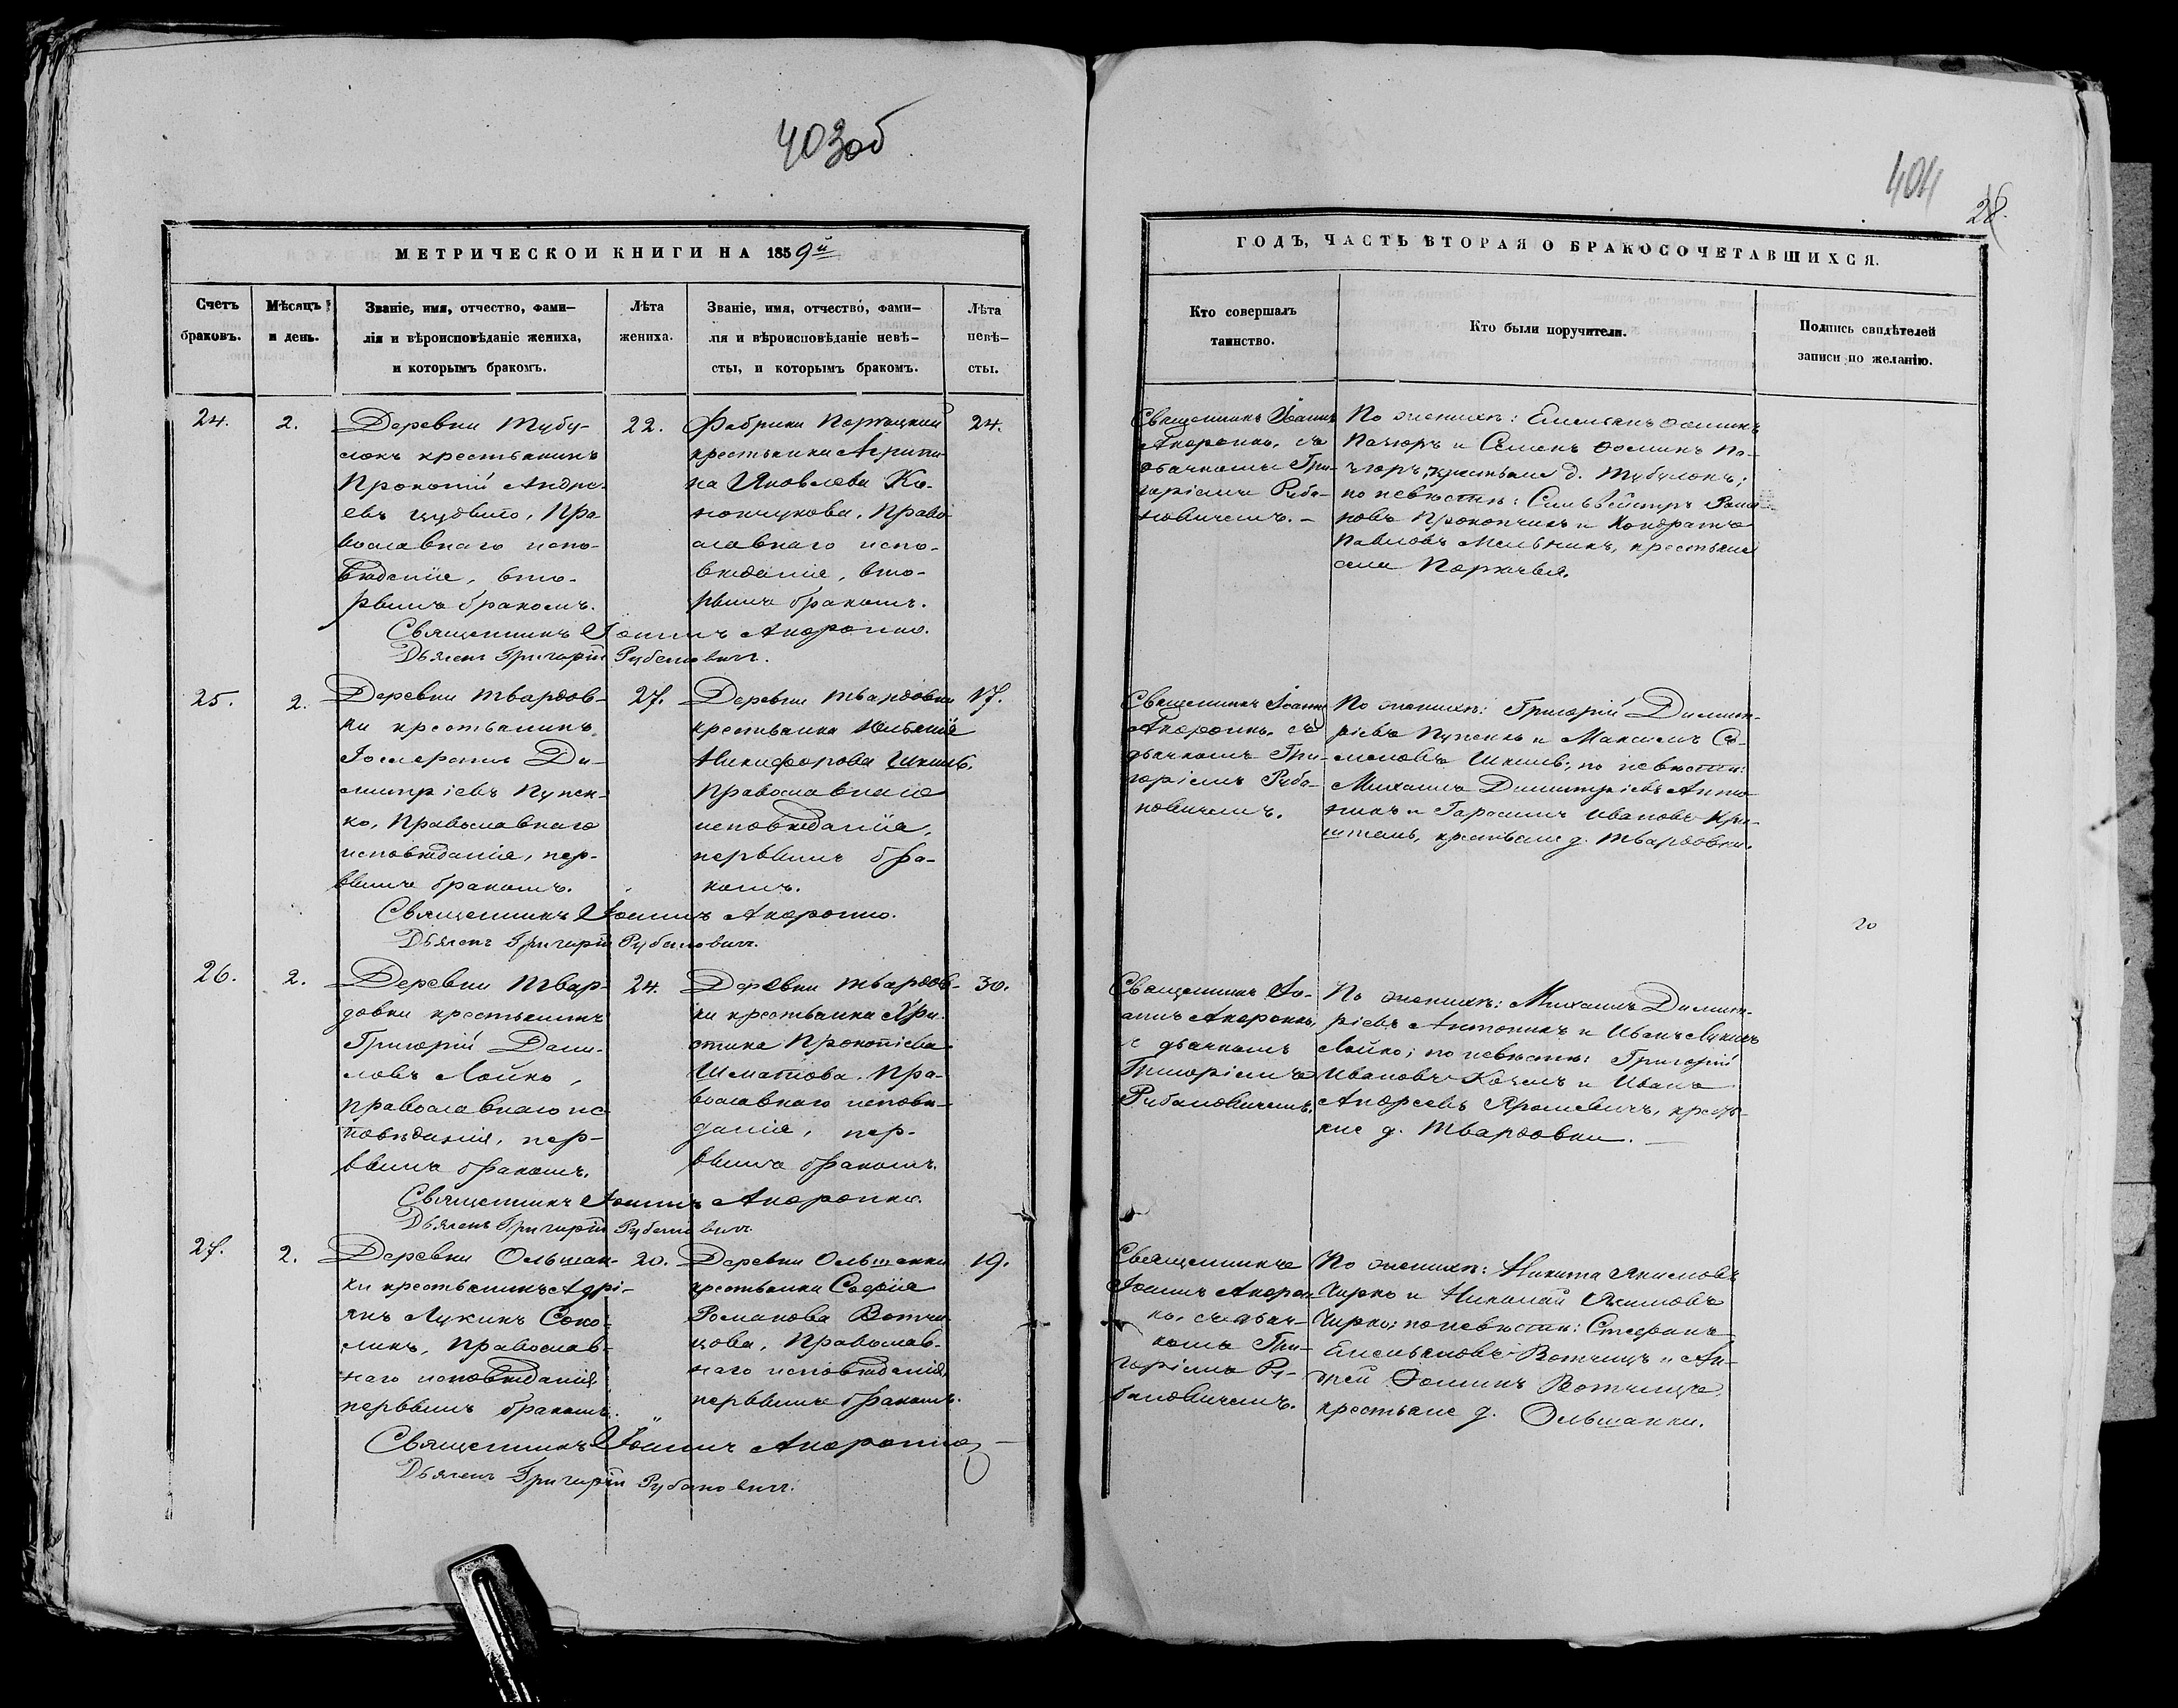 403об
МЕТРИЧЕСКОЙ КНИГИ НА 1859й
Счетъ браковъ.
Мѣсяцъ и день.
Званіе, имя, отчество, фами–
лія и вѣроисповѣданіе жениха,
и которымъ бракомъ.
Лѣта
жениха.
Званіе, имя, отчество, фами–
лія и вѣроисповѣданіе невѣ–
сты, и которымъ бракомъ.
Лѣта
невѣ–
сты.
24.
2.
Деревни Тубу-
локъ крестьянинъ
Прокопій Андре-
евъ Пра-
вославнаго испо-
вѣданія, вто-
рымъ бракомъ.
22.
Фабрики
крестьянка Агрипи-
на Яковлева Ко-
Право-
славнаго испо-
вѣданія, вто-
рымъ бракомъ.
24.
Священникъ Іоаннъ Андронко.
Дьячекъ Григорій Рубановичъ.
25.
2.
Деревни Твардов-
ки крестьянинъ
Ди-
митріевъ Пупен-
ко, Православнаго
исповѣданія, пер-
вымъ бракомъ.
27.
Деревни Твардовки
крестьянка Юліанія
Никифорова Шкиль,
Православнаго
исповѣданія,
первымъ бра-
комъ.
17.
Священникъ Іоаннъ Андронко.
Дьячекъ Григорій Рубановичъ.
26.
2.
Деревни Твар-
довки крестьянинъ
Григорій Дани-
ловъ Лойко,
православнаго ис-
повѣданія, пер-
вымъ бракомъ.
24.
Деревни Твардов-
ки крестьянка Хри-
стина Прокопіева
Шматова, Пра-
вославнаго исповѣ-
данія, пер-
вымъ бракомъ.
30.
Священникъ Іоаннъ Андронко.
Дьячекъ Григорій Рубановичъ.
27.
2.
Деревни Ольшан-
ки крестьянинъ Адрі-
янъ Лукинъ Соко-
линъ, Православ-
наго исповѣданія
первымъ бракомъ.
20.
Деревни Ольшанки
крестьянка Софія
Романова Вотчи-
цова, Православ-
наго исповѣданія,
первымъ бракомъ.
19.
Священникъ Іоаннъ Андронко
Дьячекъ Григорій Рубановичъ.
404
28.
ГОДЪ, ЧАСТЬ ВТОРАЯ О БРАКОСОЧЕТАВШИХСЯ.
Кто совершалъ
таинство.
Кто были поручители.
Подпись свидѣтелей
записи по желанію.
Священникъ Іоаннъ
Андронко, съ
дьячкомъ Гри-
горіемъ Руба-
новичемъ.
По женихѣ: Емельянъ Ѳоминъ
и Семенъ Ѳоминъ
крестьяне д. Тубулокъ;
по невѣстѣ: Сильвестръ Рома-
новъ Прокопчикъ и Кондратъ
Павловъ Мельникъ, крестьяне
села Порѣчья.
Священникъ Іоаннъ
Андронко, съ
дьячкомъ Гри-
горіемъ Руба-
новичемъ.
По женихѣ: Григорій Димит-
ріевъ Пупенко и Максимъ Се-
меновъ Шкиль; по невѣстѣ:
Михаилъ Димитріевъ Анто-
никъ и Герасимъ Ивановъ
крестьяне д. Твардовки.
20
Священникъ Іо-
аннъ Андронко,
съ дьячкомъ
Григоріемъ
Рубановичемъ.
По женихѣ: Михаилъ Димит-
ріевъ Антоникъ и Иванъ Лукинъ
Лойко; по невѣстѣ: Григорій
Ивановъ и Иванъ
Андреевъ Ярошевичъ, крестья-
не д. Твардовки.
Священникъ
Іоаннъ Андрон-
ко, съ дьяч-
комъ Гри-
горіемъ Ру-
бановичемъ.
По женихѣ: Никита Якимовъ
Чирко и Николай Якимовъ
Чирко; по невѣстѣ: Стефанъ
Емельяновъ Вотчицъ и Ан-
дрей Ѳоминъ Вотчицъ,
крестьяне д. Ольшанки.